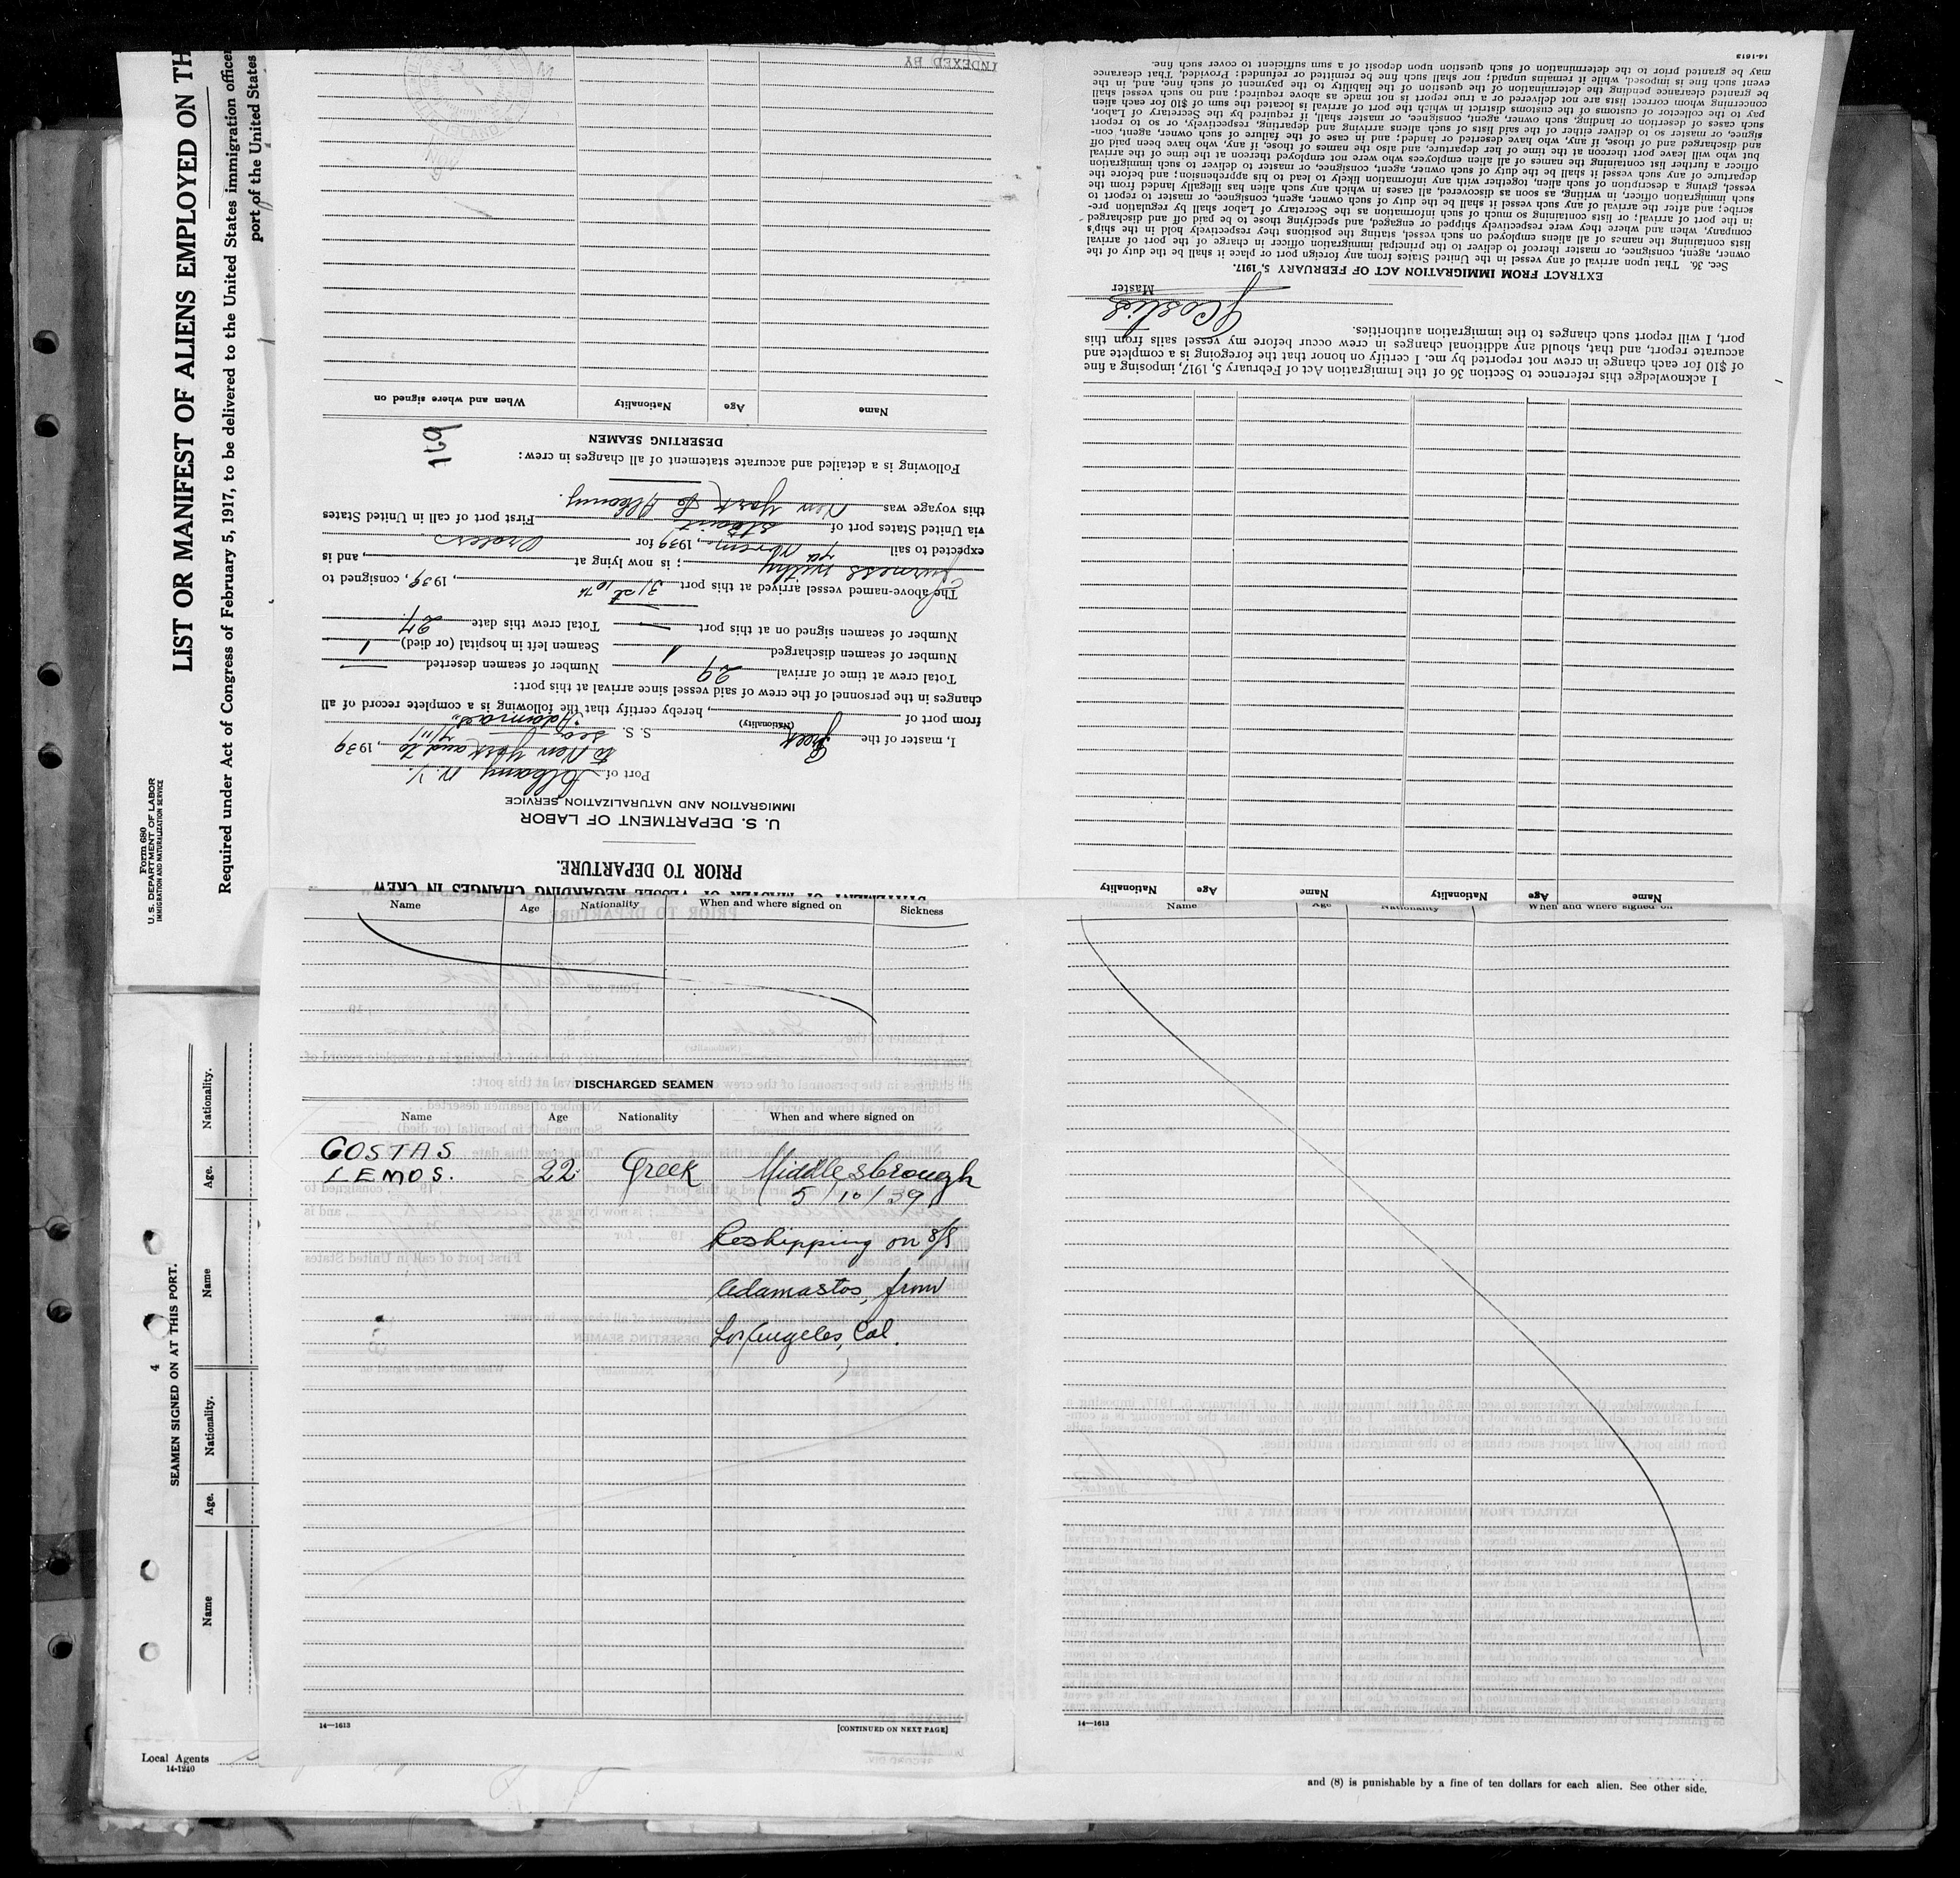 LIST OR MANIFEST OF ALIENS EMPLOYED ON TH
Required under Act of Congress of February 5, 1917, to be delivered to the United States immigration officer
port of the United States
Form 680
U. S. DEPARTMENT OF LABOR
IMMIGRATION AND NATURALIZATION SERVICE
STATEMENT OF MASTER OF VESSEL REGARDING CHANGES IN CREW
PRIOR TO DEPARTURE.
U. S. DEPARTMENT OF LABOR
IMMIGRATION AND NATURALIZATION SERVICE
Port of Albany N.Y.
to New York and to sea 7/11, 1939
I, master of the Greek S. S. "Adamas"
(Nationality)
from port of , hereby certify that the following is a complete record of all
changes in the personnel of the crew of said vessel since arrival at this port:
Total crew at time of arrival 29 Number of seamen deserted
Number of seamen discharged 1 Seamen left in hospital (or died) 1
Number of seamen signed on at this port — Total crew this date 27.
The above-named vessel arrived at this port 31st 10th, 1939, consigned to
Furness Withy ; is now lying at , and is
expected to sail 7th Novem., 1939 for Orders
via United States port of First port of call in United States
this voyage was New York to Albany.
Following is a detailed and accurate statement of all changes in crew:
169
DESERTING SEAMEN
Name Age Nationality When and where signed on
INDEXED BY
Name Age Nationality Name Age Nationality
I acknowledge this reference to Section 36 of the Immigration Act of February 5, 1917, imposing a fine
of $10 for each change in crew not reported by me. I certify on honor that the foregoing is a complete and
accurate report, and that, should any additional changes in crew occur before my vessel sails from this
port, I will report such changes to the immigration authorities.
Master
EXTRACT FROM IMMIGRATION ACT OF FEBRUARY 5, 1917.
Sec. 36. That upon arrival of any vessel in the United States from any foreign port or place it shall be the duty of the
owner, agent, consignee, or master thereof to deliver to the principal immigration officer in charge of the port of arrival
lists containing the names of all aliens employed on such vessel, stating the positions they respectively hold in the ship's
company, when and where they were respectively shipped or engaged, and specifying those to be paid off and discharged
in the port of arrival; or lists containing so much of such information as the Secretary of Labor shall by regulation pre-
scribe; and after the arrival of any such vessel it shall be the duty of such owner, agent, consignee, or master to report to
such immigration officer, in writing, as soon as discovered, all cases in which any such alien has illegally landed from the
vessel, giving a description of such alien, together with any information likely to lead to his apprehension; and before the
departure of any such vessel it shall be the duty of such owner, agent, consignee, or master to deliver to such immigration
officer a further list containing the names of all alien employees who were not employed thereon at the time of the arrival
but who will leave port thereon at the time of her departure, and also the names of those, if any, who have been paid off
and discharged and of those, if any, who have deserted or landed; and in case of the failure of such owner, agent, con-
signee, or master so to deliver either of the said lists of such aliens arriving and departing, respectively, or so to report
such cases of desertion or landing, such owner, agent, consignee, or master shall, if required by the Secretary of Labor,
pay to the collector of customs of the customs district in which the port of arrival is located the sum of $10 for each alien
concerning whom correct lists are not delivered or a true report is not made as above required; and no such vessel shall
be granted clearance pending the determination of the question of the liability to the payment of such fine, and, in the
event such fine is imposed, while it remains unpaid; nor shall such fine be remitted or refunded: Provided, That clearance
may be granted prior to the determination of such question upon deposit of a sum sufficient to cover such fine.
14-1613
Name Age Nationality When and where signed on Sickness
DISCHARGED SEAMEN
Name Age Nationality When and where signed on
COSTAS
LEMOS. 22 Greek Middlesbrough
5/10/39
Reshipping on S/S
Adamastos, from
Los Angeles, Cal.
14—1613 [CONTINUED ON NEXT PAGE]
Name Age Nationality When and where signed on
14—1613
4
SEAMEN SIGNED ON AT THIS PORT.
Name Age. Nationality. Name Age. Nationality.
Local Agents
14-1240
and (8) is punishable by a fine of ten dollars for each alien. See other side.